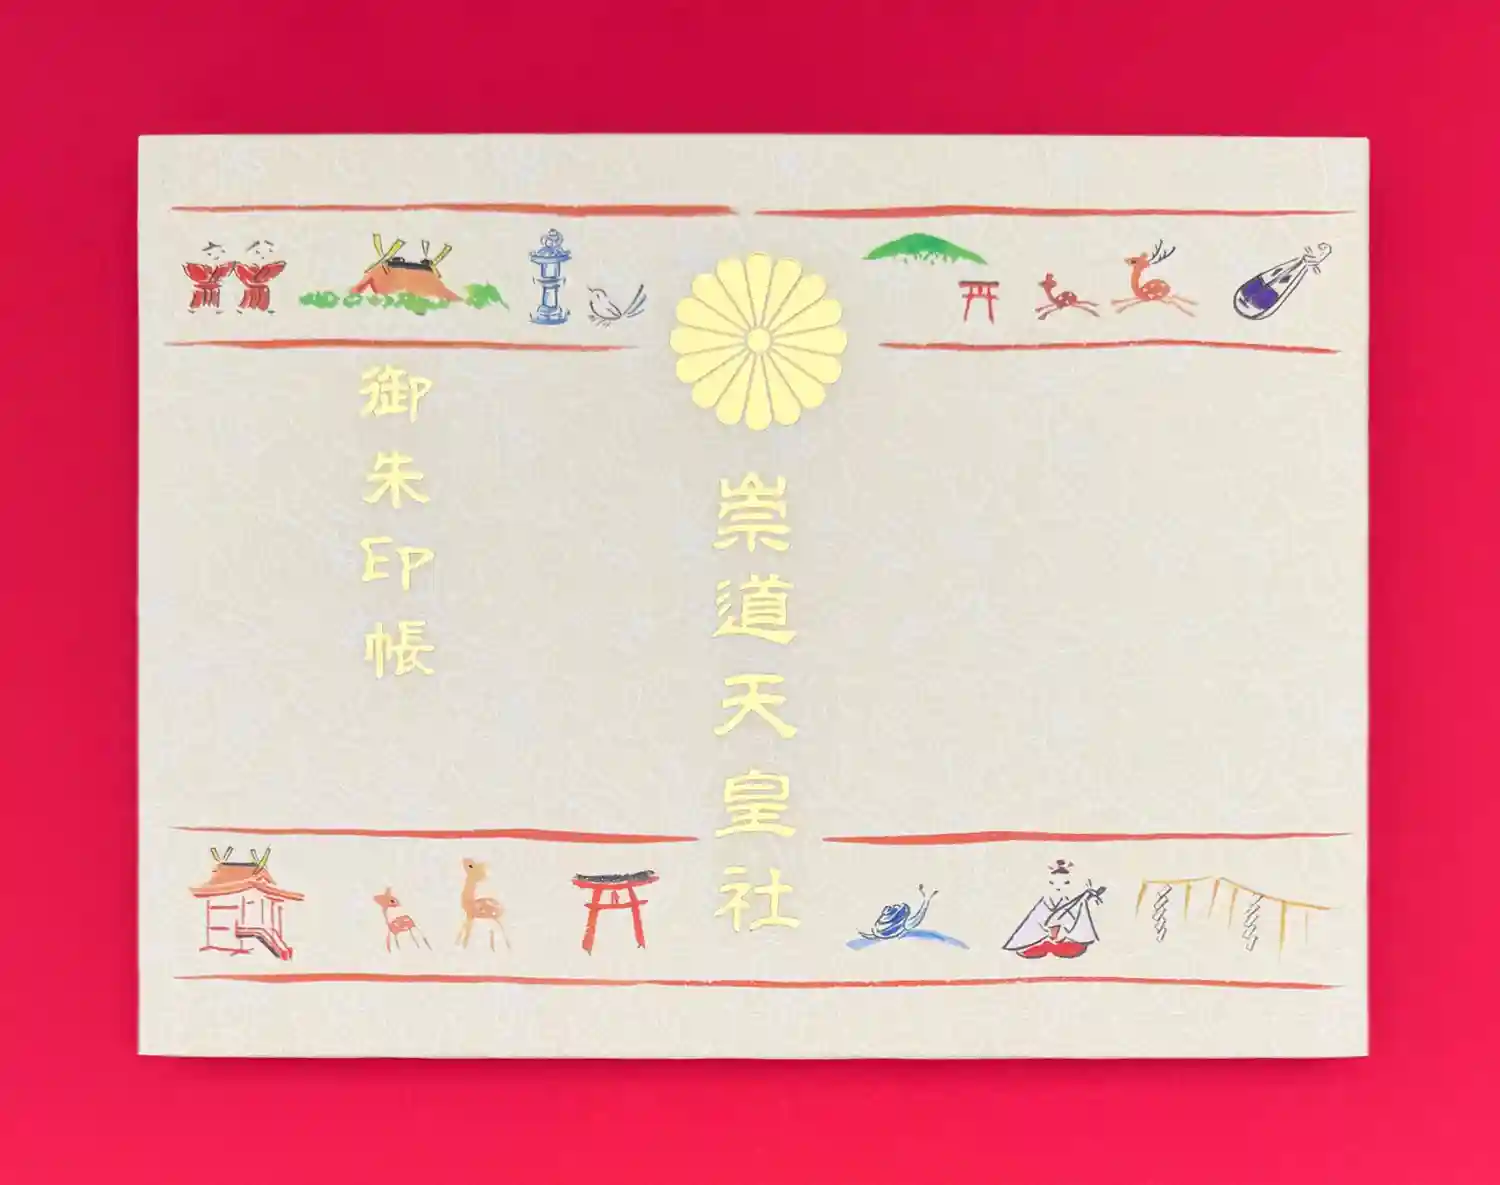 崇道天皇社
御朱印帳